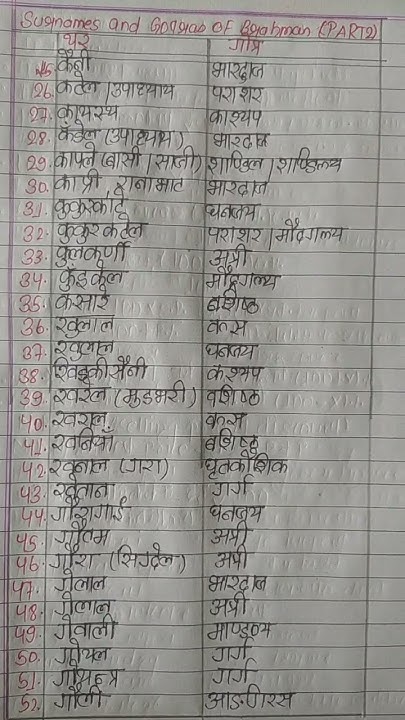 Surnames and Gotras of Brahman (PART2)
थर गोत्र
25. कैनी भारद्वाज
26. कटेल / उपाध्याय पराशर
27. कायस्थ काश्यप
28. कंडेल (उपाध्याय) भारद्वाज
29. काफ्ले (बासी / साजी) शाण्डिल / शाण्डिल्य
30. काप्री रानाभाट भारद्वाज
31. कुकुरकाटे धनञ्जय
32. कुकुर कटेल पराशर / मौदगल्य
33. पुलकर्णी अत्री
34. कुंइकेल मौद्गल्य
35. कसार बशिष्ठ
36. खलाल कत्स
37. खुलाल धनञ्जय
38. खिड्कीसैनी कश्यप
39. खरेल (मुडभरी) वशिष्ठ
40. खराल कत्स
41. खनियाँ बशिष्ठ
42. खनाल (गरा) घृतकौशिक
43. खुताना गर्ग
44. गोरागाई धनञ्जय
45. गौतम अत्री
46. गौरा (सिग्देल) अत्री
47. गेलाल भारद्वाज
48. गेलान अत्री
49. गेवाली माण्डव्य
50. गोयल गर्ग
51. गर्ग
52. गौली आङगिरस